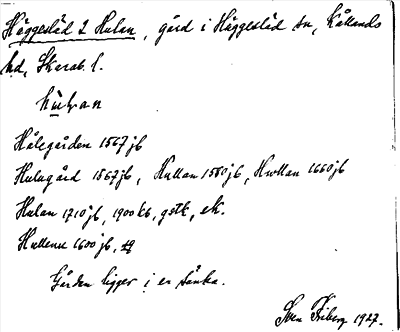 Häggesled 2 Hulan, gård i Häggesled sn, Kållands
hd, Skarab. l.
Hålegården 1567 jb
Hulagård 1567 jb, Hullan 1580 jb, Hwllan 1660 jb
Hulan 1710 jb, 1900 kb, gstk, ek.
Hullene 1600 jb,
Gården ligger i en sänka.
Sven Friberg 1927.